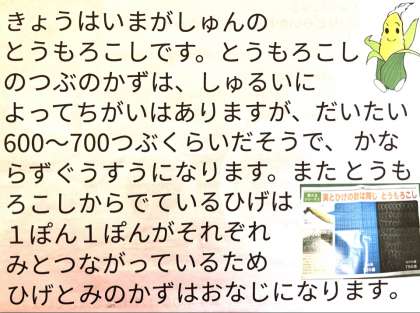 きょうはいまがしゅんの
とうもろこしです。とうもろこし
のつぶのかずは、しゅるいに
よってちがいはありますが、だいたい
600〜700つぶくらいだそうで、 かな
らずぐうすうになります。また とうも
ろこしからでているひげは
１ぽん１ぽんがそれぞれ
みとつながっているため
ひげとみのかずはおなじになります。
実とひげの数は同じ とうもろこし